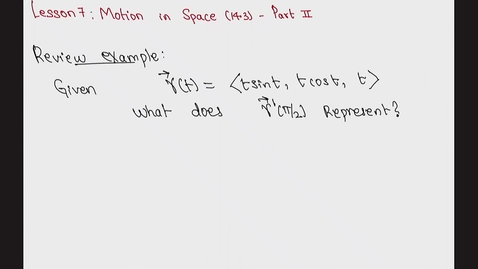 Lesson 7: Motion in Space (14.3) - Part II
Review example:
Given r⃗(t) = ⟨tsint, tcost, t⟩
what does r⃗'(π/2) Represent?